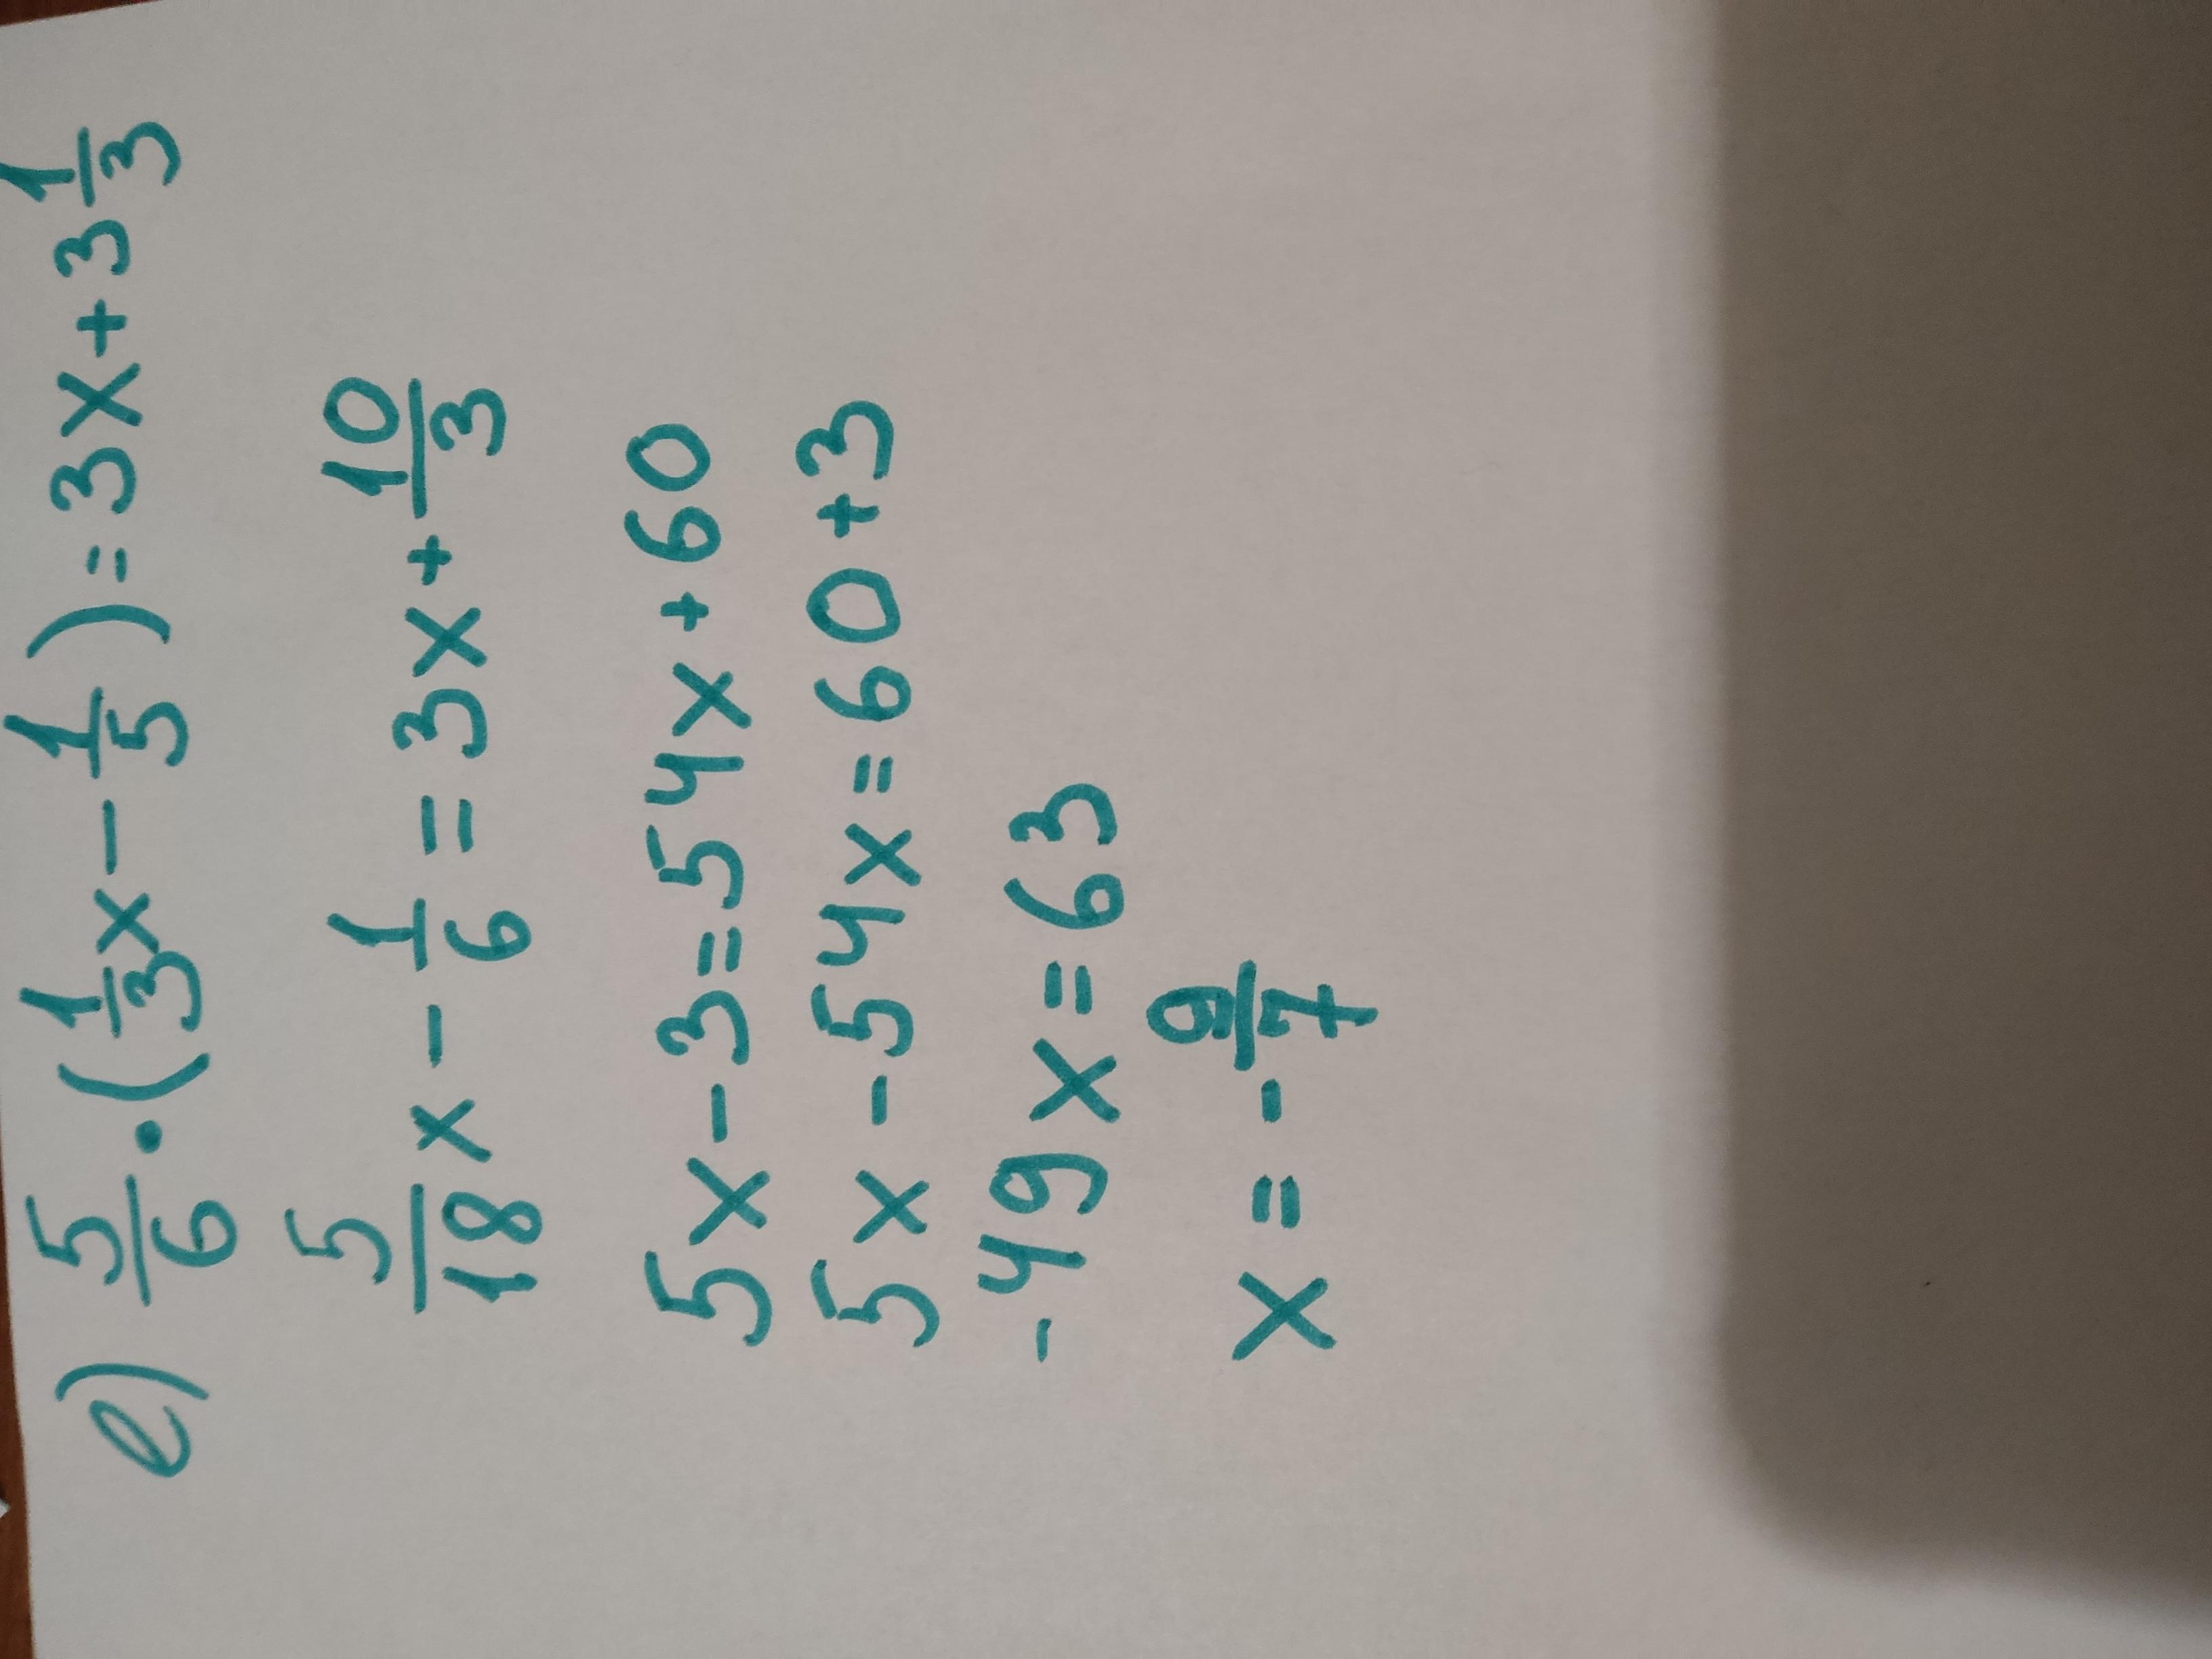 e) 5/6 · (1/3 x - 1/5) = 3x + 3 1/3
5/18 x - 1/6 = 3x + 10/3
5x - 3 = 54x + 60
5x - 54x = 60 + 3
-49x = 63
x = - 9/7